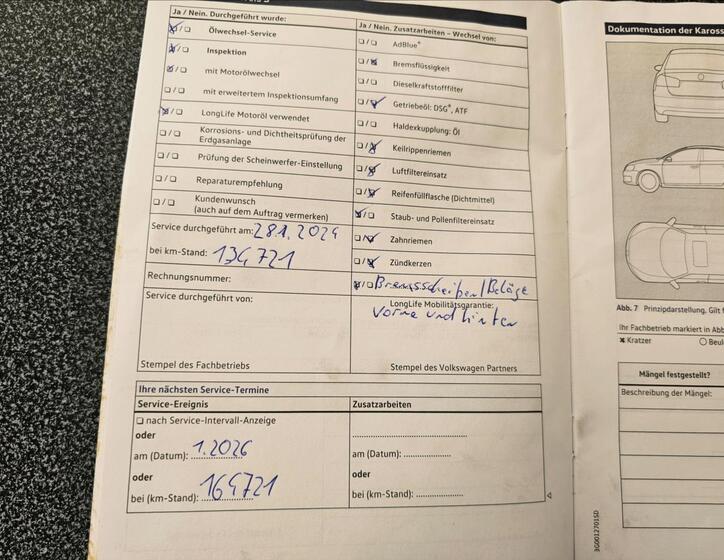 Ja / Nein. Durchgeführt wurde:
Ölwechsel-Service
Inspektion
mit Motorölwechsel
mit erweitertem Inspektionsumfang
LongLife Motoröl verwendet
Korrosions- und Dichtheitsprüfung der
Erdgasanlage
Prüfung der Scheinwerfer-Einstellung
Reparaturempfehlung
Kundenwunsch
(auch auf dem Auftrag vermerken)
Service durchgeführt am: 28.1.2024
bei km-Stand: 134721
Rechnungsnummer:
Service durchgeführt von:
Stempel des Fachbetriebs
Ja / Nein. Zusatzarbeiten – Wechsel von:
AdBlue®
Bremsflüssigkeit
Dieselkraftstofffilter
Getriebeöl: DSG®, ATF
Haldexkupplung: Öl
Keilrippenriemen
Luftfiltereinsatz
Reifenfüllflasche (Dichtmittel)
Staub- und Pollenfiltereinsatz
Zahnriemen
Zündkerzen
Bremsscheiben/Beläge
LongLife Mobilitätsgarantie:
vorne und hinten
Stempel des Volkswagen Partners
Ihre nächsten Service-Termine
Service-Ereignis
Zusatzarbeiten
nach Service-Intervall-Anzeige
oder
am (Datum): 1.2026
oder
bei (km-Stand): 164721
am (Datum):
oder
bei (km-Stand):
3G0012701SD
Dokumentation der Kaross
Abb. 7 Prinzipdarstellung. Gilt f
Ihr Fachbetrieb markiert in Abb
✖ Kratzer
Beul
Mängel festgestellt?
Beschreibung der Mängel: